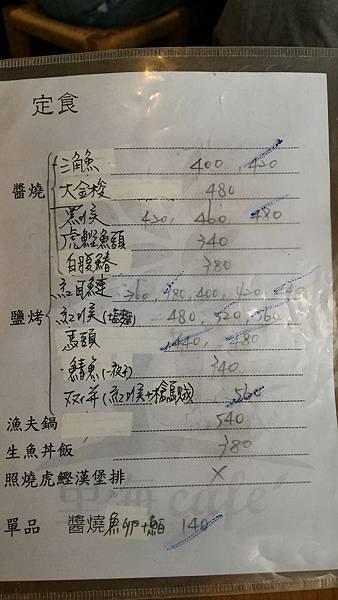 定食
醬燒
三角魚 400、420
大金梭 480
黑喉 420、460、480
虎鰹魚頭 340
白腹鰆 380
鹽烤
紅目鰱 360、380、400、420、440
紅喉(塩麴) 480、520、560
馬頭 440、480
鯖魚(一夜干) 340
双併(紅喉+槍烏賊) 560
漁夫鍋 540
生魚丼飯 380
照燒虎鰹漢堡排 X
單品 醬燒魚卵+鮊 140
café